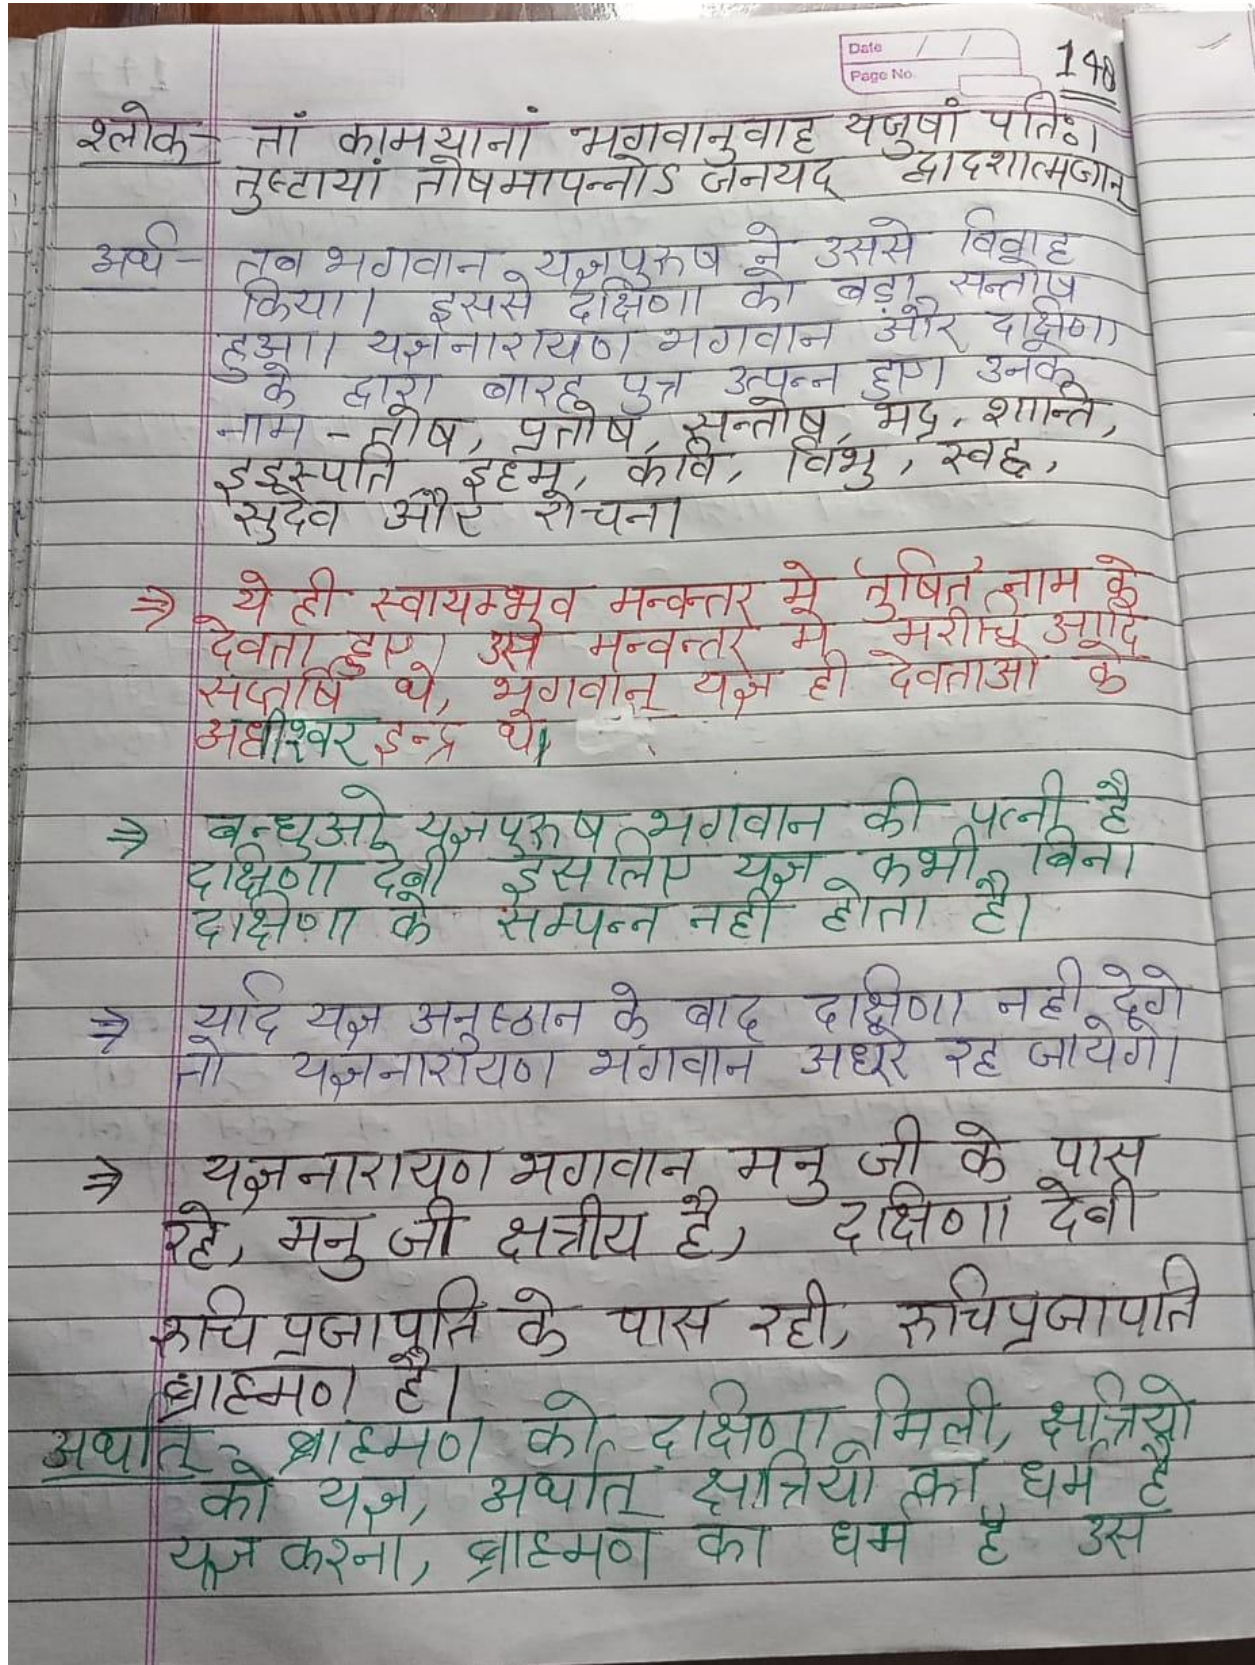 Date / /
Page No.
148
श्लोक - तां कामयानां भगवानुवाह यजुषां पतिः।
तुष्टायां तोषमापन्नोऽ जनयद् द्वादशात्मजान्
अर्थ - तब भगवान यज्ञपुरुष ने उससे विवाह
किया। इससे दक्षिणा को बड़ा सन्तोष
हुआ। यज्ञनारायण भगवान और दक्षिणा
के द्वारा बारह पुत्र उत्पन्न हुए। उनके
नाम - तोष, प्रतोष, सन्तोष, भद्र, शान्ति,
इडस्पति इहम, कवि, विभु, स्वह्न,
सुदेव और रोचन।
⇒ ये ही स्वायम्भुव मन्वन्तर मे 'तुषित' नाम के
देवता हुए। उस मन्वन्तर मे मरीचि आदि
सप्तर्षि थे, भगवान् यज्ञ ही देवताओ के
अधीश्वर इन्द्र थे।
⇒ बन्धुओ यज्ञपुरुष भगवान की पत्नी है
दक्षिणा देवी इसलिए यज्ञ कभी बिना
दक्षिणा के सम्पन्न नही होता है।
⇒ यदि यज्ञ अनुष्ठान के बाद दक्षिणा नही देगे
तो यज्ञनारायण भगवान अधूरे रह जायेगे।
⇒ यज्ञनारायण भगवान मनु जी के पास
रहे, मनु जी क्षत्रीय है, दक्षिणा देवी
रुचि प्रजापति के पास रही, रुचिप्रजापति
ब्राह्मण है।
अर्थात् - ब्राह्मण को दक्षिणा मिली, क्षत्रियो
को यज्ञ, अर्थात् क्षत्रियो का धर्म है
यज्ञ करना, ब्राह्मण का धर्म है उस